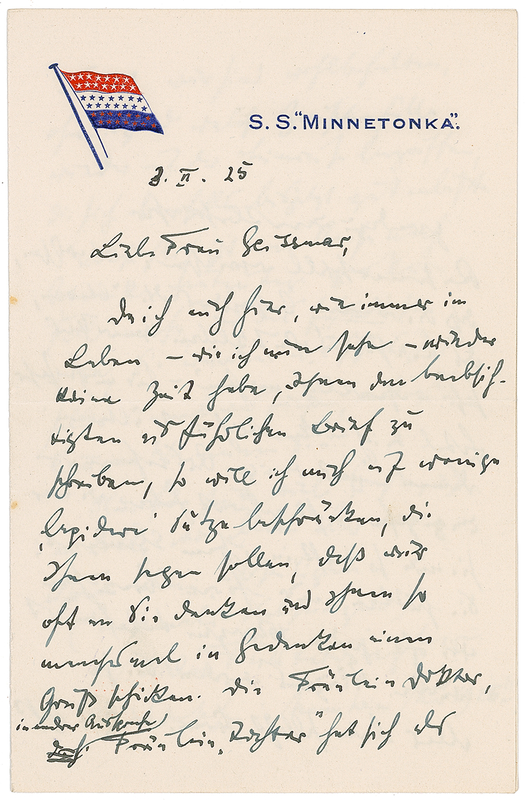 S. S. "MINNETONKA".
3. II. 25
Liebe Frau Geissmar,
Da ich auch hier, wie immer im
Leben – wie ich nun sehe – wieder
keine Zeit habe, Ihnen den beabsich-
tigten ausführlichen Brief zu
schreiben, so will ich mich auf wenige
'lapidare' Sätze beschränken, die
Ihnen sagen sollen, daß wir
oft an Sie denken und Ihnen so
manchmal in Gedanken einen
Gruß schicken. Die Fräulein Doktor,
in andrer Aussprache
d. h. Fräulein „Tochter" hat sich als